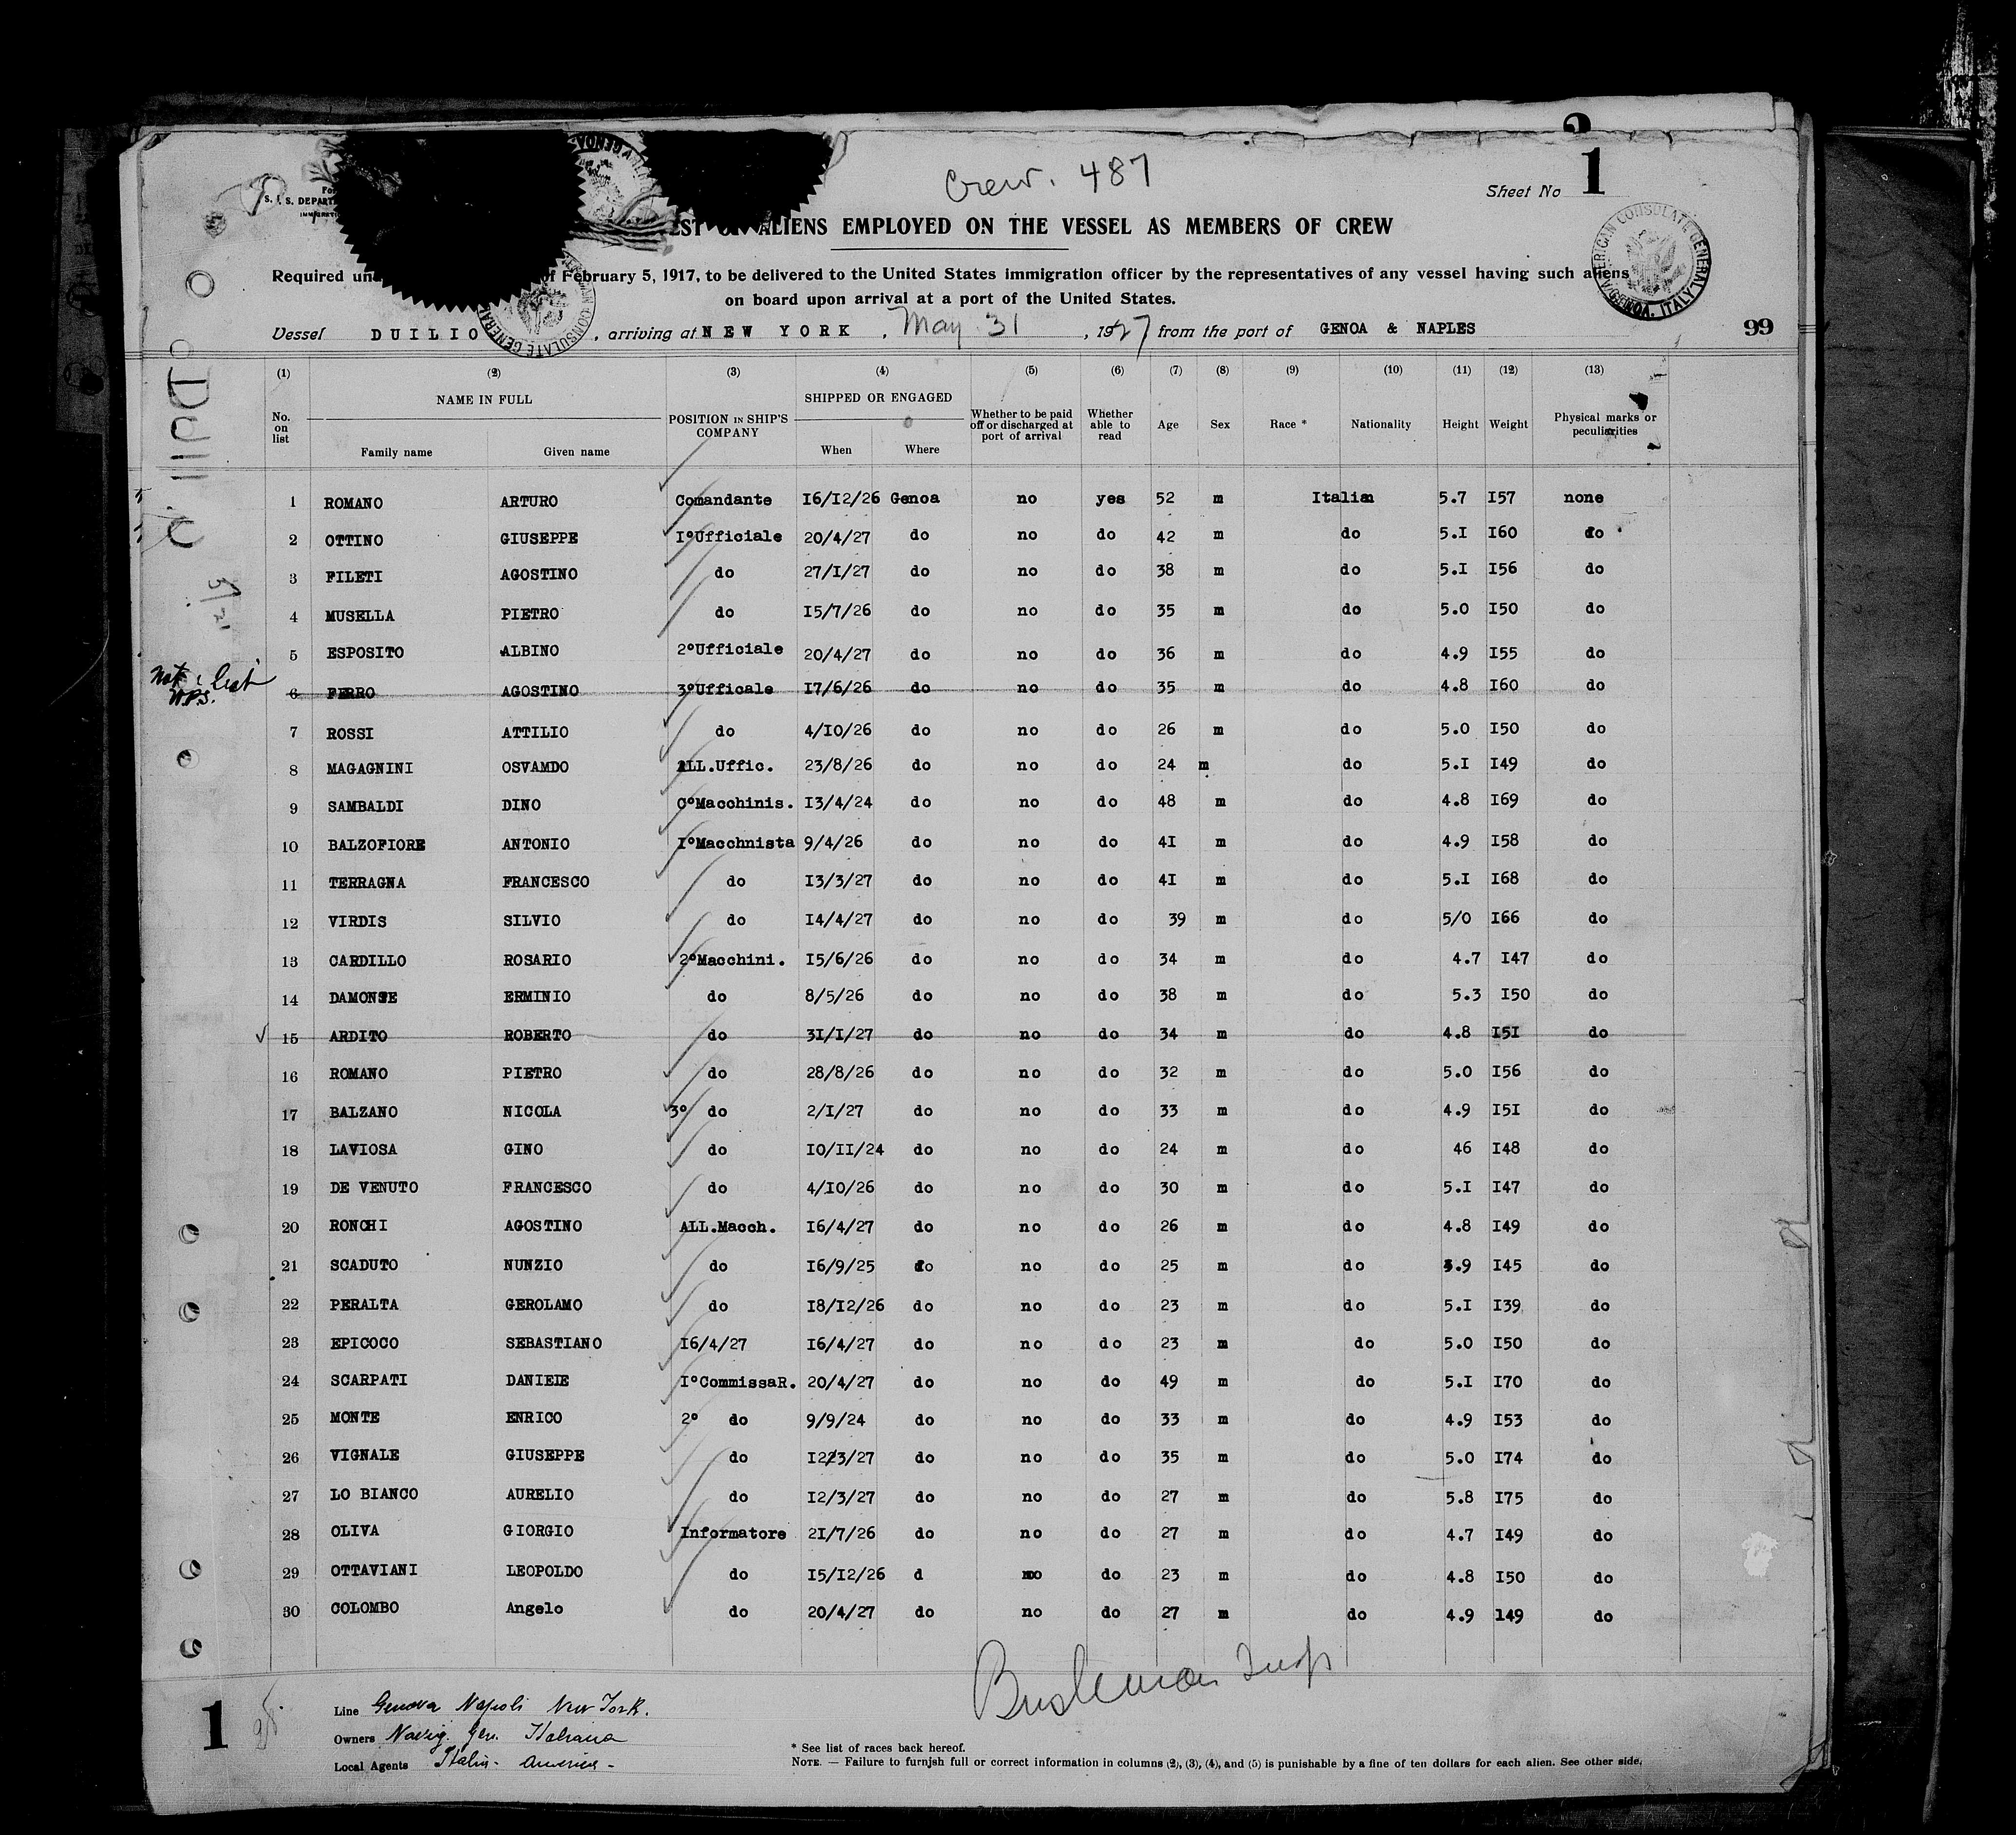 Crew. 487
Sheet No 1
ALIENS EMPLOYED ON THE VESSEL AS MEMBERS OF CREW
Required of February 5, 1917, to be delivered to the United States immigration officer by the representatives of any vessel having such aliens
on board upon arrival at a port of the United States.
Vessel DUILIO, arriving at NEW YORK, May 31, 1927 from the port of GENOA & NAPLES 99
AMERICAN CONSULATE GENERAL GENOA, ITALY
Duilio
(1) (2) (3) (4) (5) (6) (7) (8) (9) (10) (11) (12) (13)
No. on list NAME IN FULL POSITION IN SHIP'S COMPANY SHIPPED OR ENGAGED Whether to be paid off or discharged at port of arrival Whether able to read Age Sex Race * Nationality Height Weight Physical marks or peculiarities
Family name Given name When Where
1 ROMANO ARTURO Comandante I6/I2/26 Genoa no yes 52 m Italian 5.7 I57 none
2 OTTINO GIUSEPPE I°Ufficiale 20/4/27 do no do 42 m do 5.I I60 do
3 FILETI AGOSTINO do 27/I/27 do no do 38 m do 5.I I56 do
4 MUSELLA PIETRO do I5/7/26 do no do 35 m do 5.0 I50 do
5 ESPOSITO ALBINO 2°Ufficiale 20/4/27 do no do 36 m do 4.9 I55 do
6 FERRO AGOSTINO 3°Ufficale I7/6/26 do no do 35 m do 4.8 I60 do
7 ROSSI ATTILIO do 4/IO/26 do no do 26 m do 5.0 I50 do
8 MAGAGNINI OSVAMDO ALL.Uffic. 23/8/26 do no do 24 m do 5.I I49 do
9 SAMBALDI DINO C°Macchinis. I3/4/24 do no do 48 m do 4.8 I69 do
10 BALZOFIORE ANTONIO I°Macchnista 9/4/26 do no do 4I m do 4.9 I58 do
11 TERRAGNA FRANCESCO do I3/3/27 do no do 4I m do 5.I I68 do
12 VIRDIS SILVIO do I4/4/27 do no do 39 m do 5/0 I66 do
13 CARDILLO ROSARIO 2°Macchini. I5/6/26 do no do 34 m do 4.7 I47 do
14 DAMONTE ERMINIO do 8/5/26 do no do 38 m do 5.3 I50 do
15 ARDITO ROBERTO do 3I/I/27 do no do 34 m do 4.8 I5I do
16 ROMANO PIETRO do 28/8/26 do no do 32 m do 5.0 I56 do
17 BALZANO NICOLA 3° do 2/I/27 do no do 33 m do 4.9 I5I do
18 LAVIOSA GINO do IO/II/24 do no do 24 m do 46 I48 do
19 DE VENUTO FRANCESCO do 4/IO/26 do no do 30 m do 5.I I47 do
20 RONCHI AGOSTINO ALL.Macch. I6/4/27 do no do 26 m do 4.8 I49 do
21 SCADUTO NUNZIO do I6/9/25 do no do 25 m do .9 I45 do
22 PERALTA GEROLAMO do I8/I2/26 do no do 23 m do 5.I I39 do
23 EPICOCO SEBASTIANO I6/4/27 I6/4/27 do no do 23 m do 5.0 I50 do
24 SCARPATI DANIELE I°CommissaR. 20/4/27 do no do 49 m do 5.I I70 do
25 MONTE ENRICO 2° do 9/9/24 do no do 33 m do 4.9 I53 do
26 VIGNALE GIUSEPPE do I2/3/27 do no do 35 m do 5.0 I74 do
27 LO BIANCO AURELIO do I2/3/27 do no do 27 m do 5.8 I75 do
28 OLIVA GIORGIO Informatore 2I/7/26 do no do 27 m do 4.7 I49 do
29 OTTAVIANI LEOPOLDO do I5/I2/26 d no do 23 m do 4.8 I50 do
30 COLOMBO Angelo do 20/4/27 do no do 27 m do 4.9 149 do
1
Line Genova Napoli New York.
Owners Navig. Gen. Italiana
Local Agents Italia-America-
* See list of races back hereof.
NOTE. — Failure to furnjsh full or correct information in columns (2), (3), (4), and (5) is punishable by a fine of ten dollars for each alien. See other side.